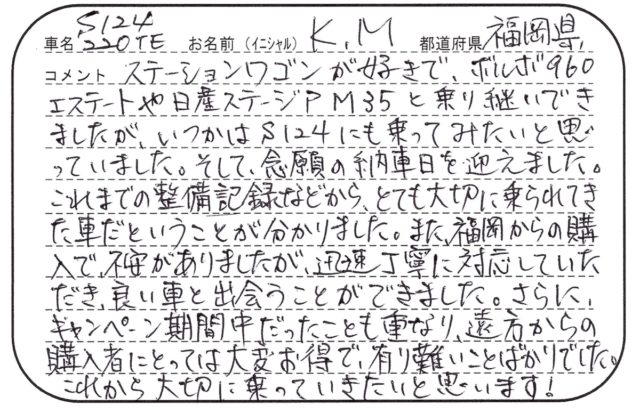 S124
車名 220TE お名前 (イニシャル) K.M 都道府県 福岡県
コメント ステーションワゴンが好きで、ボルボ960
エステートや日産ステージアM35と乗り継いでき
ましたが、いつかはS124にも乗ってみたいと思
っていました。そして、念願の納車日を迎えました。
これまでの整備記録などから、とても大切に乗られてき
た車だということが分かりました。また、福岡からの購
入で、不安がありましたが、迅速丁寧に対応していた
だき、良い車と出会うことができました。さらに、
キャンペーン期間中だったことも重なり、遠方からの
購入者にとっては大変お得で、有り難いことばかりでした。
これから大切に乗っていきたいと思います!